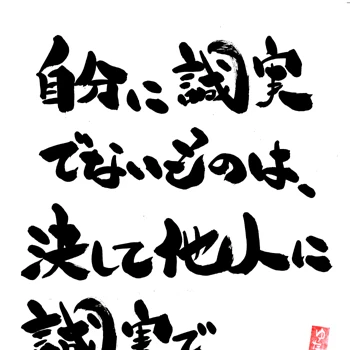 自分に誠実
でないものは、
決して他人に
誠実で